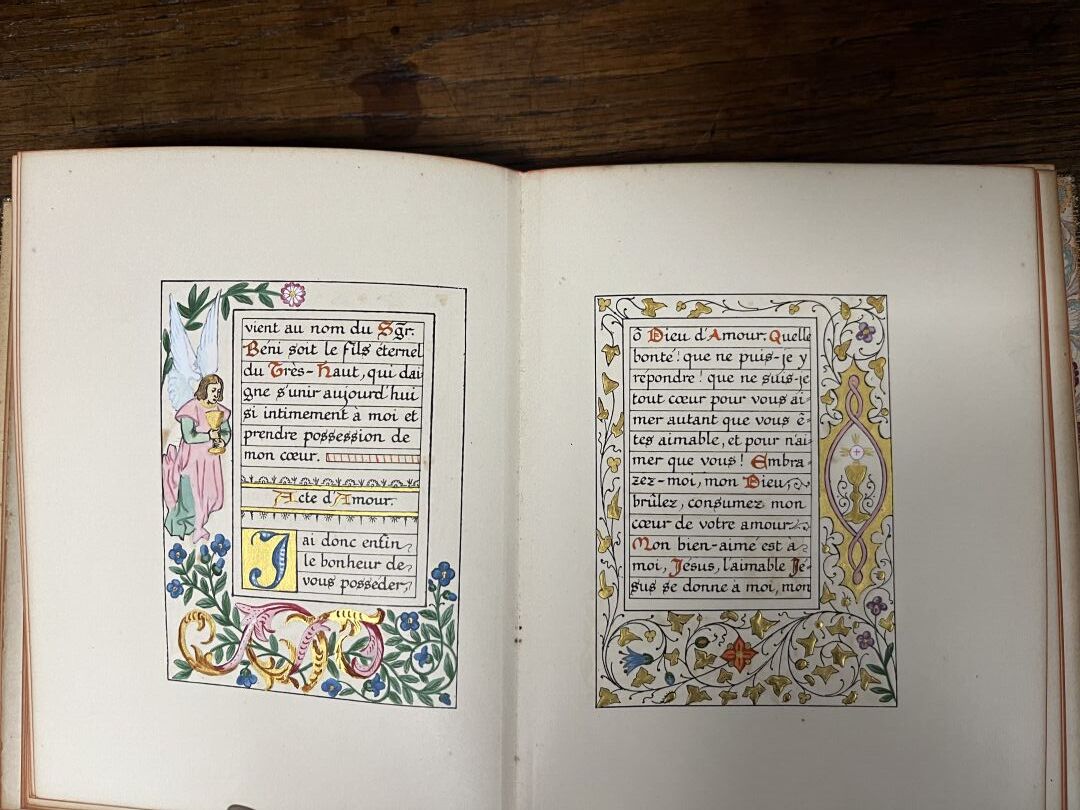 vient au nom du Sg̃r.
Béni soit le fils éternel
du Très-Haut, qui dai
gne s'unir aujourd'hui
si intimement à moi et
prendre possession de
mon cœur.
Acte d'Amour.
J'ai donc enfin
le bonheur de
vous posséder,
ô Dieu d'Amour. Quelle
bonté! que ne puis-je y
répondre! que ne suis-je
tout cœur pour vous ai-
mer autant que vous ê-
tes aimable, et pour n'ai-
mer que vous! Embra-
zez-moi, mon Dieu,
brûlez, consumez mon
cœur de votre amour.
Mon bien-aimé est à
moi, Jésus, l'aimable Jé-
sus se donne à moi, mon